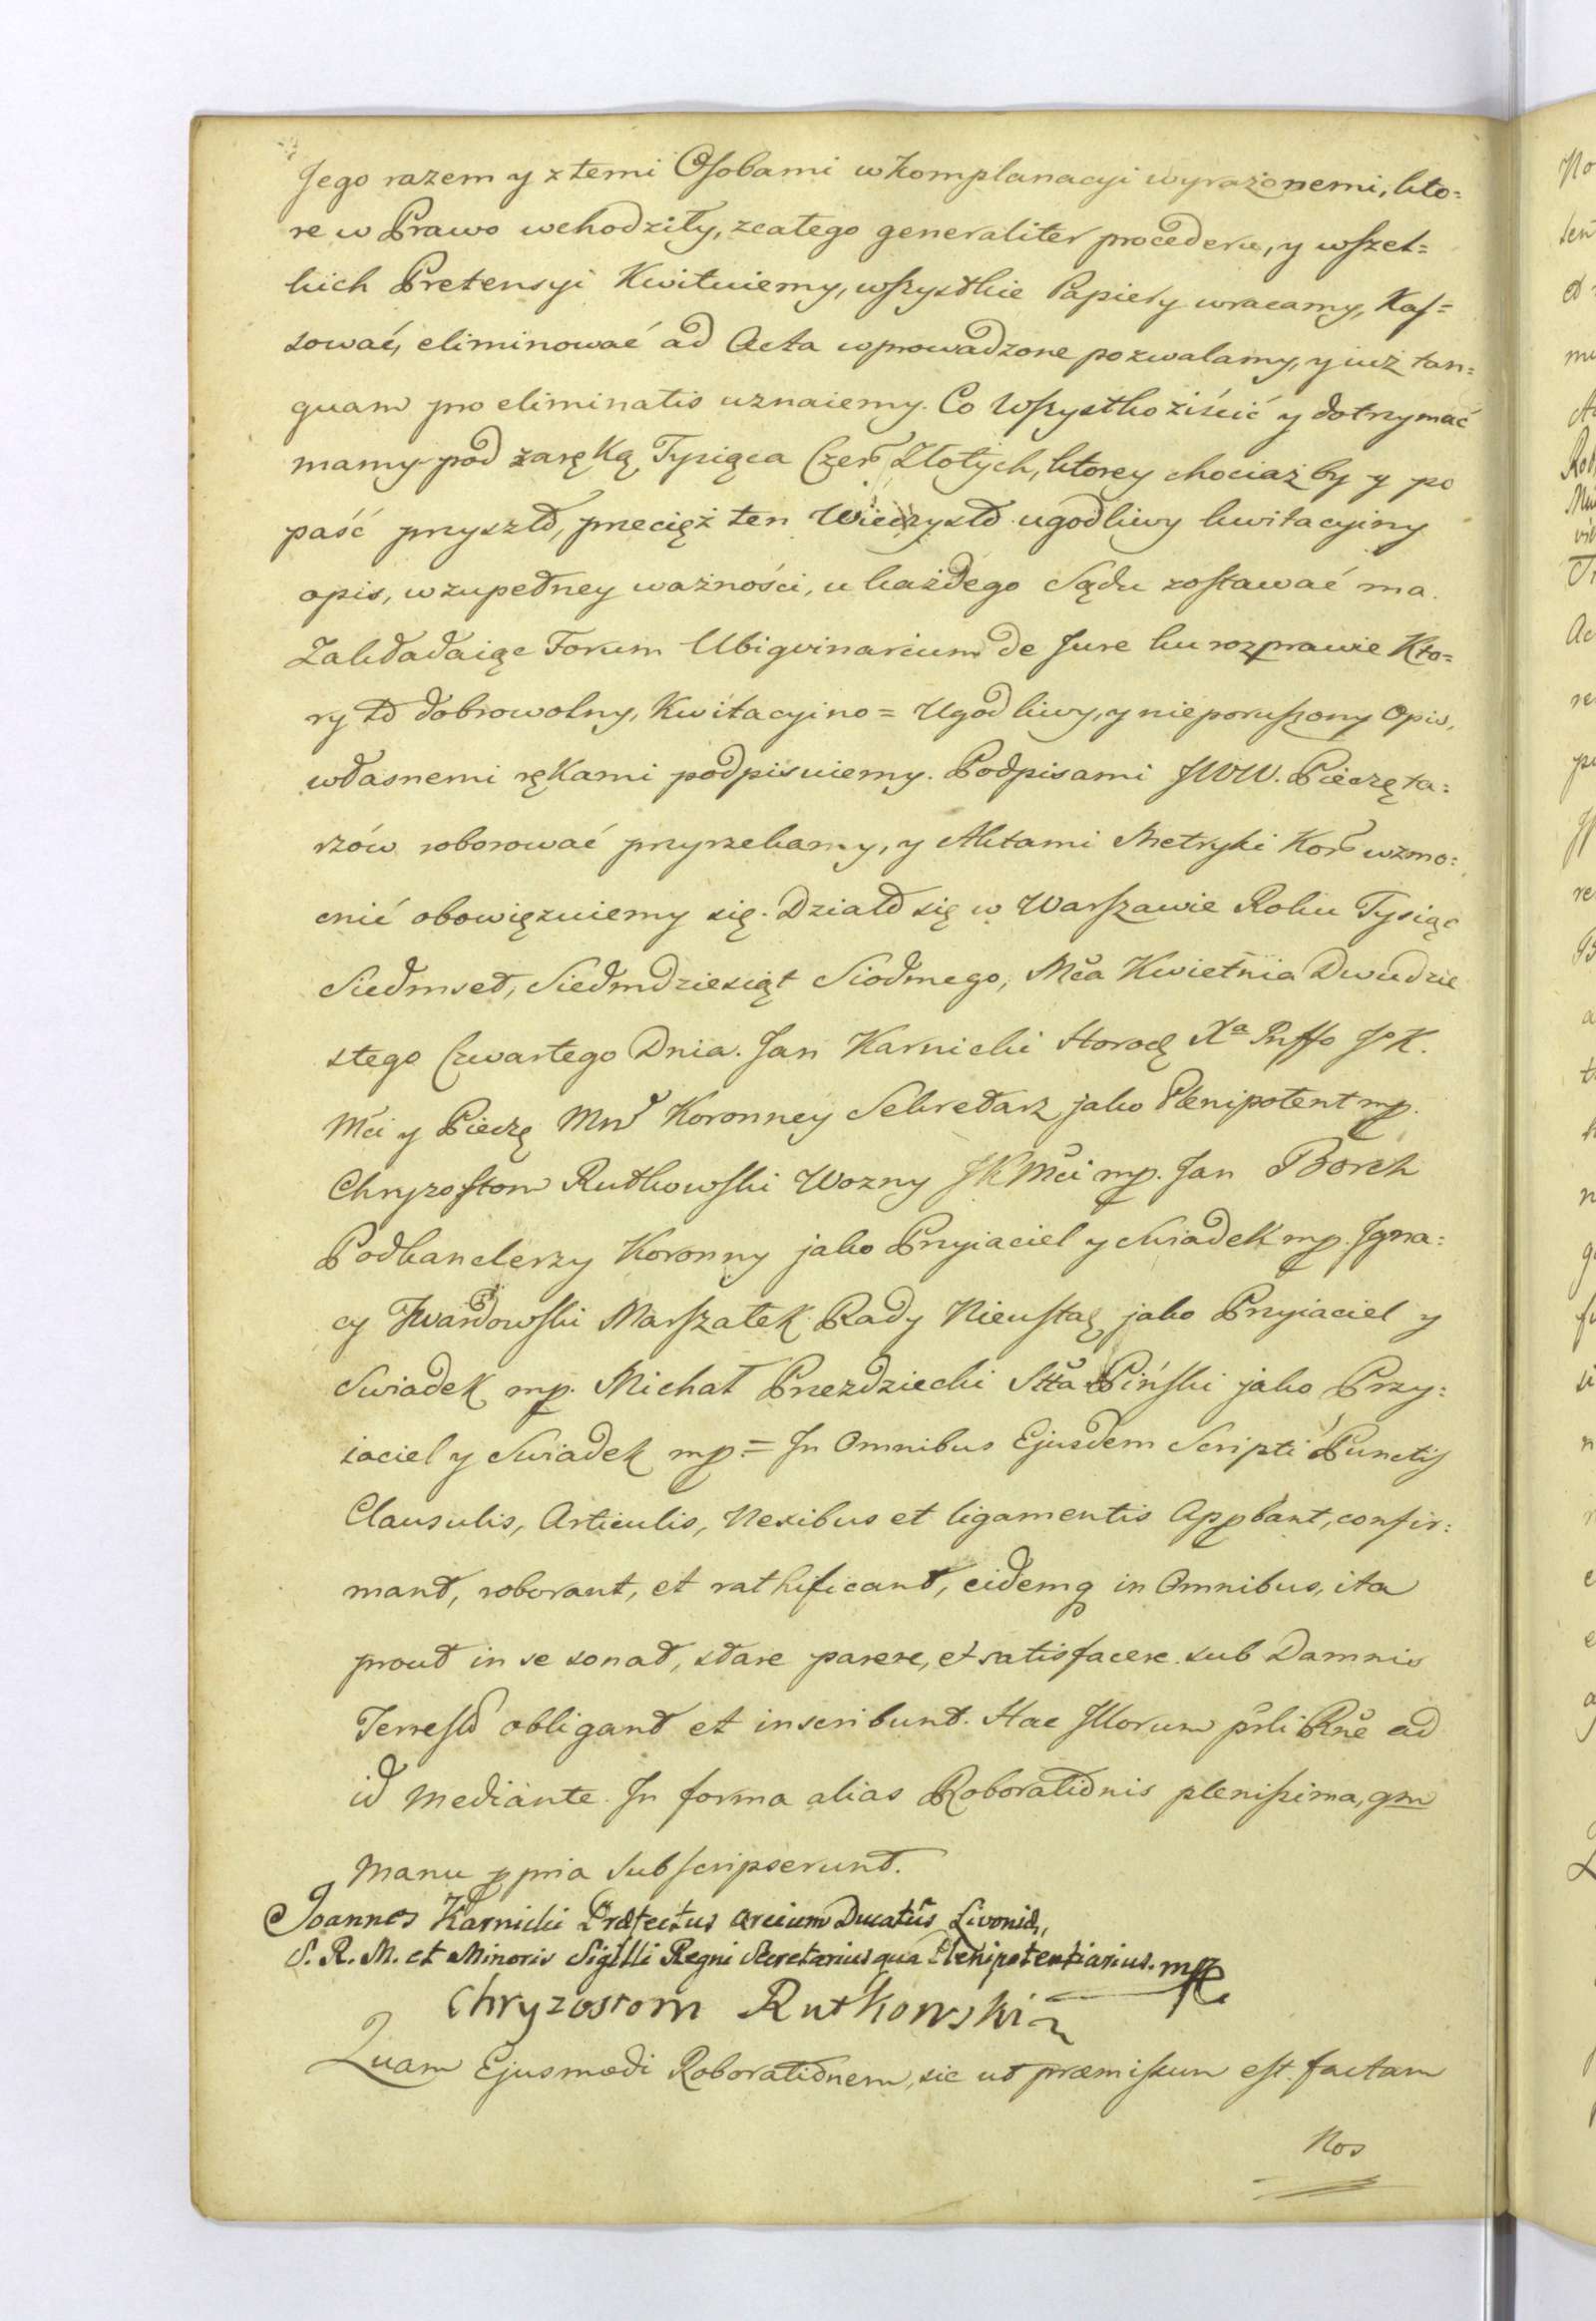 Jego razem y z temi Osobami w Komplanacyi wyrażonemi, kto=
re w Prawo wchodziły, z całego generaliter procederu, y wszel=
kich Pretensyi Kwituiemy, wszystkie Papiery wracamy, Kas=
sować, eliminować ad Acta wprowadzone pozwalamy, y iuż tan=
quam pro eliminatis uznaiemy. Co Wszystko ziścić y dotrzymać
mamy pod zaręką Tysiąca Czer Złotych, ktorey chociażby y po
paść przyszło, przecięż ten Wieczysto ugodliwy kwitacyiny
opis, w zupełney ważności, u każdego Sądu zostawać ma.
Zakładaiąc Forum Ubiqvinarium de Jure ku rozprawie Kto=
ry to dobrowolny, Kwitacyino= Ugodliwy, y nieporuszony Opis,
własnemi rękami podpisuiemy. Podpisami JWW. Pieczęta=
rzów roborować przyrzekamy, y Aktami Metryki Kor wzmo=
cnić obowięzuiemy się. Działo się w Warszawie Roku Tysiąc
Siedmset, Siedmdziesiąt Siodmego, Mca Kwietnia Dwudzie
stego Czwartego Dnia. Jan Karnicki Horodę Xa Inflo JK.
Mci y Pieczę Mn Koronney Sekretarz jako Plenipotent mp.
Chryzostom Rutkowski Wozny JKMci mp. Jan Borch
Podkanclerzy Koronny jako Przyiaciel y Swiadek mp. Igna=
cy Twardowski Marszałek Rady Nieustaę jako Przyiaciel y
Swiadek mp. Michał Przezdziecki Stta Piński jako Przy=
iaciel y Swiadek mp.= In Omnibus Ejusdem Scripti Punctis
Clausulis, Articulis, Nexibus et ligamentis Appbant, confir=
mant, roborant, et rathificant, eidemq in Omnibus, ita
prout in se sonat, stare parere, et satisfacere sub Damnis
Terrest obligant et inscribunt. Hac Illorum prli Rne ad
id mediante. In forma alias Roborationis plenissima, qm
Manu ppria Subscripserunt.
Joannes Karnicki Præfectus Arcium Ducatus Livoniæ,
S. R. M. et Minoris Sigilli Regni Secretarius qua Plenipotentiarius. mp
Chryzostom Rutkowski
Quam Ejusmodi Roborationem, sic ut præmissum est factam
Nos